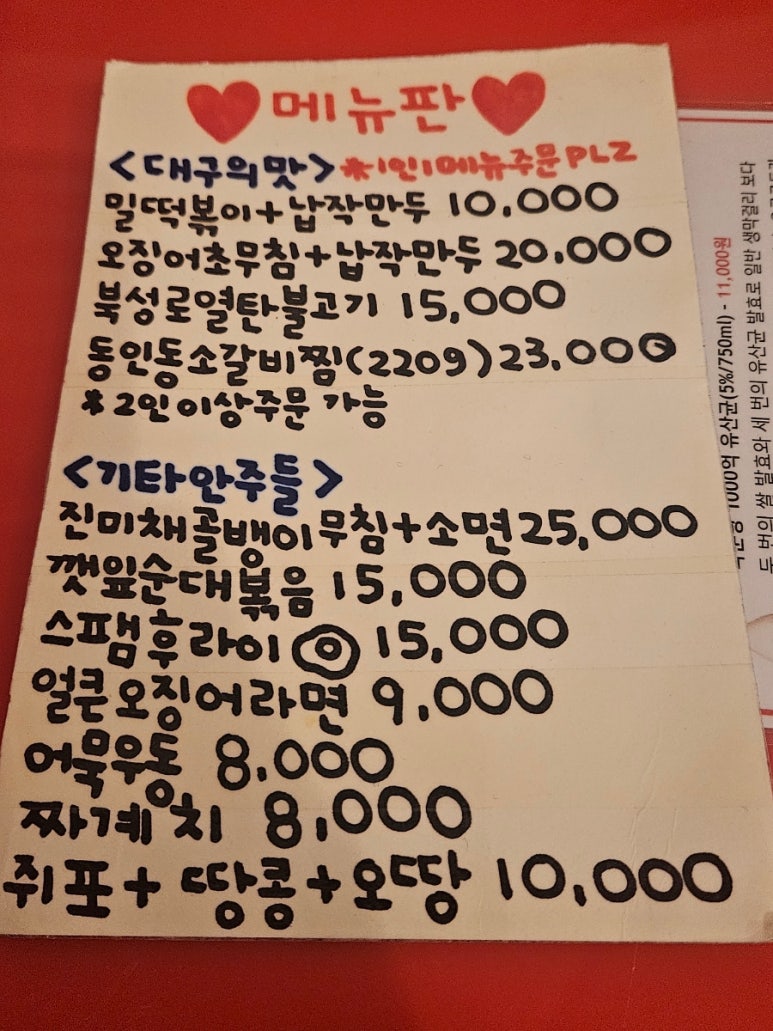 메뉴판
<대구의맛> *1인1메뉴주문PLZ
밀떡볶이+납작만두 10,000
오징어초무침+납작만두 20,000
북성로열탄불고기 15,000
동인동소갈비찜(220g) 23,000
*2인이상주문 가능
<기타안주들>
진미채골뱅이무침+소면 25,000
깻잎순대볶음 15,000
스팸후라이 15,000
얼큰오징어라면 9,000
어묵우동 8,000
짜계치 8,000
쥐포+땅콩+오땅 10,000
1000억 유산균(5%/750ml) - 11,000원
두 번의 쌀 발효와 세 번의 유산균 발효로 일반 생막걸리 보다